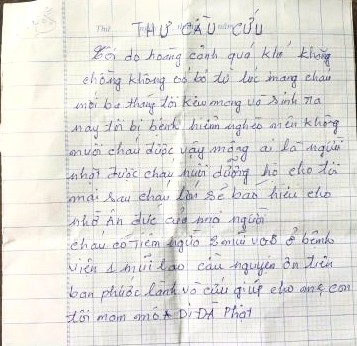 THƯ CẦU CỨU
Tôi do hoàng cảnh quá khổ không
chồng không có bỏ từ lúc mang chau
mới ba tháng tôi kêu mang và sinh ra
nay tôi bị bệnh hiểm nghèo nên không
nuôi chau được vậy mong ai là người
nhặt được chau nuôi dưỡng hộ cho tôi
mai sau chau lớn sẽ báo hiếu cho
nhờ ân đức của mọi người
chau có tiêm ngừa 2 mũi ở bênh
viên 1 mũi lao cầu nguyện ơn trên
ban phước lành và cứu giúp cho mẹ con
tôi mam mô A Di Đà Phật